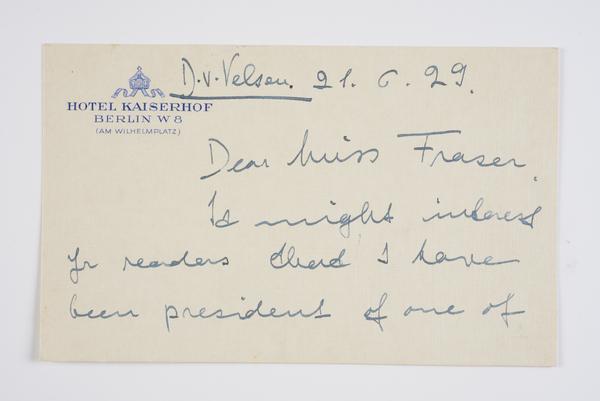 HOTEL KAISERHOF
BERLIN W 8
(AM WILHELMPLATZ)
D.v.Velsen. 21. 6. 29.
Dear Miss Fraser,
It might interest
yr readers that I have
been president of one of